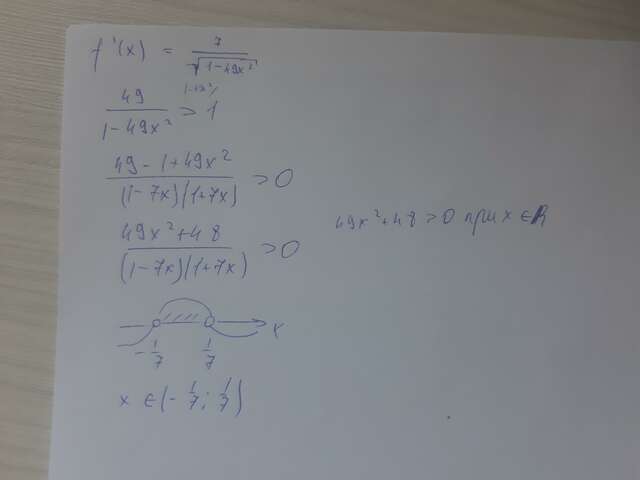 f'(x) = 7/√(1-49x²)
49/(1-49x²) > 1
(49-1+49x²)/((1-7x)(1+7x)) > 0
(49x²+48)/((1-7x)(1+7x)) > 0
49x²+48 > 0 при x ∈ R
-1/7 1/7 x
x ∈ (-1/7; 1/7)